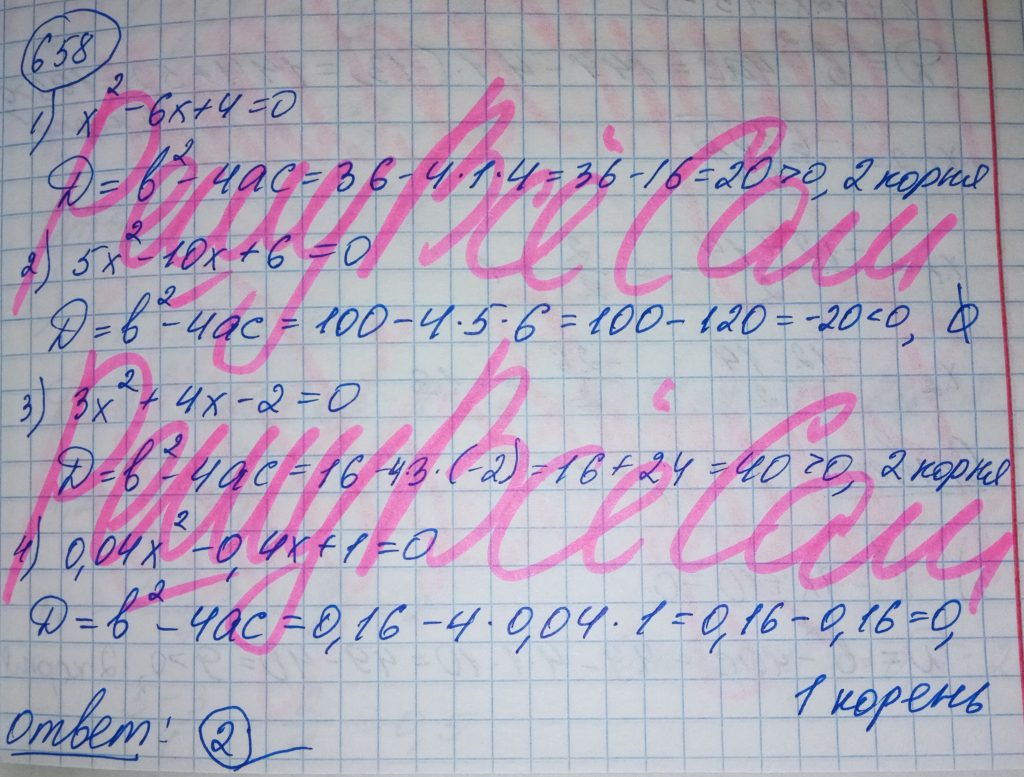 658
1) x² - 6x + 4 = 0
D = b² - 4ac = 36 - 4·1·4 = 36 - 16 = 20 > 0, 2 корня
2) 5x² - 10x + 6 = 0
D = b² - 4ac = 100 - 4·5·6 = 100 - 120 = -20 < 0, ∅
3) 3x² + 4x - 2 = 0
D = b² - 4ac = 16 - 4·3·(-2) = 16 + 24 = 40 > 0, 2 корня
4) 0,04x² - 0,4x + 1 = 0
D = b² - 4ac = 0,16 - 4·0,04·1 = 0,16 - 0,16 = 0,
1 корень
Ответ: 2
Решу Всё Сам
Решу Всё Сам